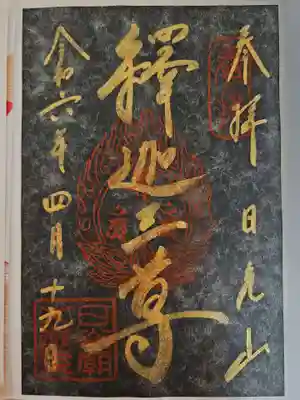 奉拝 日光山
釋迦三尊
令和六年四月十九日